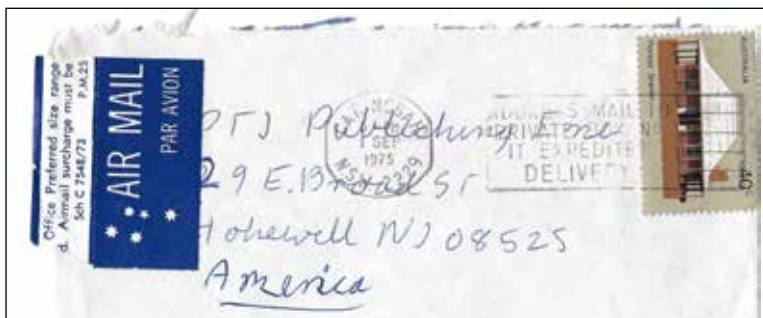 Office Preferred size range
d. Airmail surcharge must be
Sch C 7548/73 P.M.25
AIR MAIL
PAR AVION
1 SEP
1975
NSW 2329
MAIL
PRIVATE
IT EXPEDITE
DELIVERY
AUSTRALIA
40c
PTJ Publishing Inc
29 E. Broad St
Hohewell NJ 08525
America